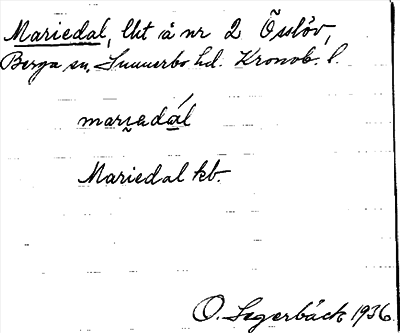 Mariedal, lht å nr 2 Össlöv,
Berga sn, Sunnerbo hd. Kronob. l.
marıadál
Mariedal kb.
O. Segerbäck 1936